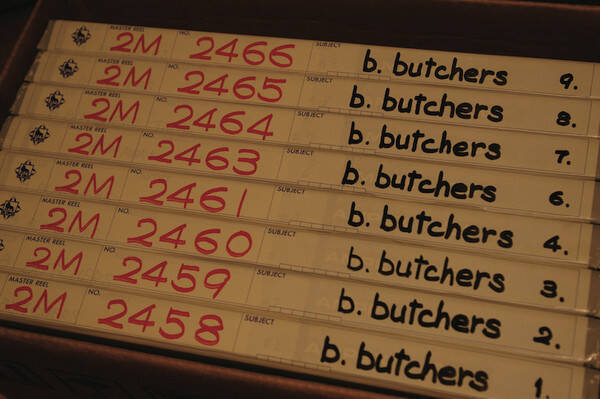 MASTER REEL 2M NO. 2466 SUBJECT b. butchers 9.
MASTER REEL 2M NO. 2465 SUBJECT b. butchers 8.
MASTER REEL 2M NO. 2464 SUBJECT b. butchers 7.
MASTER REEL 2M NO. 2463 SUBJECT b. butchers 6.
MASTER REEL 2M NO. 2461 SUBJECT b. butchers 4.
MASTER REEL 2M NO. 2460 SUBJECT b. butchers 3.
MASTER REEL 2M NO. 2459 SUBJECT b. butchers 2.
MASTER REEL 2M NO. 2458 SUBJECT b. butchers 1.